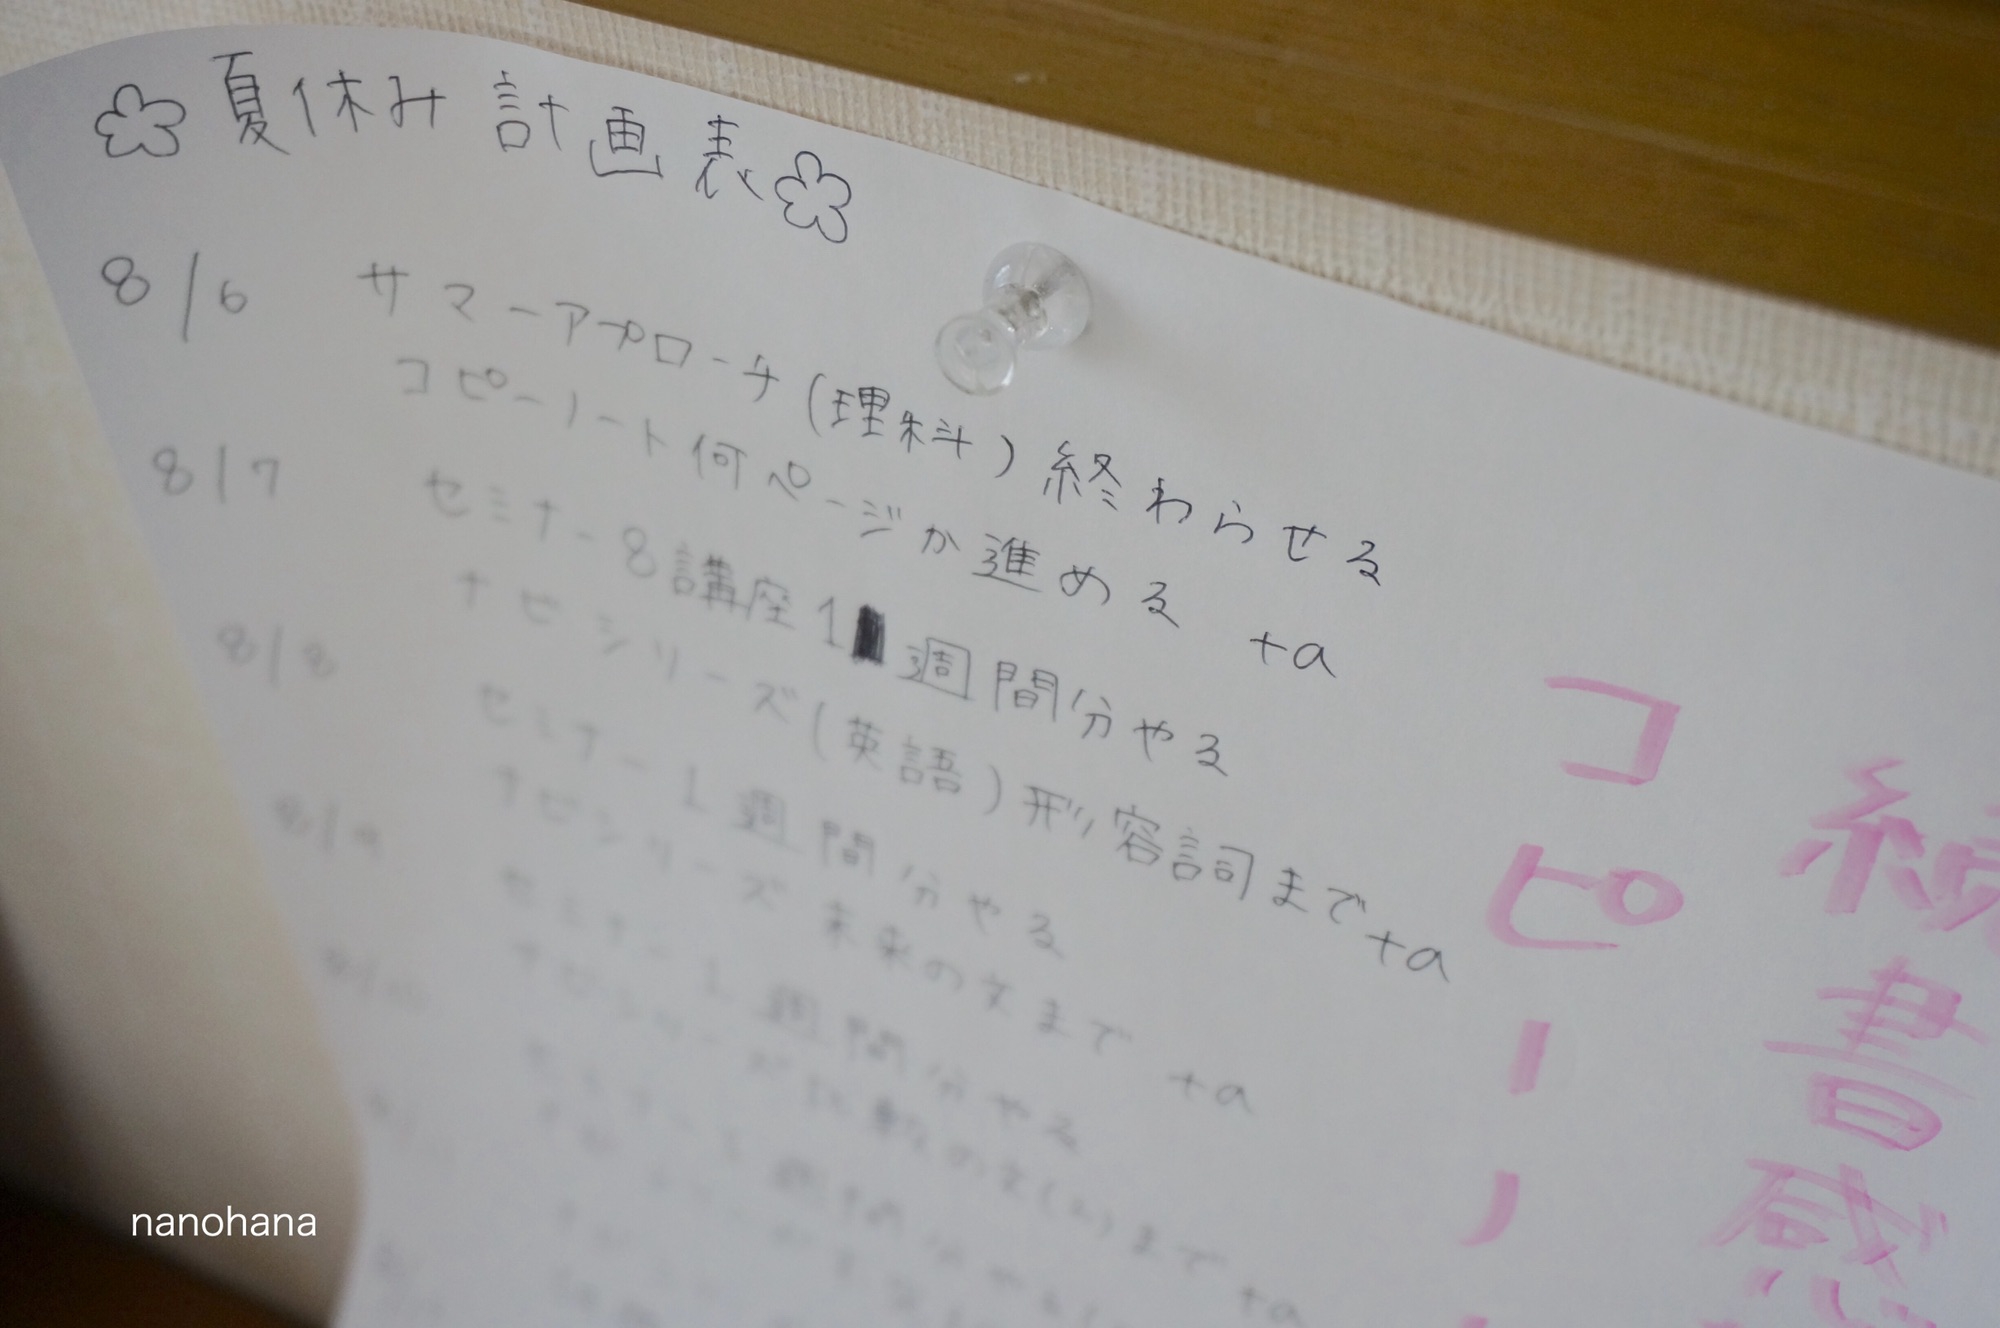 夏休み計画表
8/6 サマーアプローチ(理科)終わらせる
コピーノート何ページか進める +a
8/7 セミナー8講座1週間分やる
ナビシリーズ(英語)形容詞まで+a
8/8 セミナー1週間分やる
ナビシリーズ 未来の文まで +a
8/9 セミナー1週間分やる
ナビシリーズ比較の文(2)まで +a
コピーノ
書感
nanohana